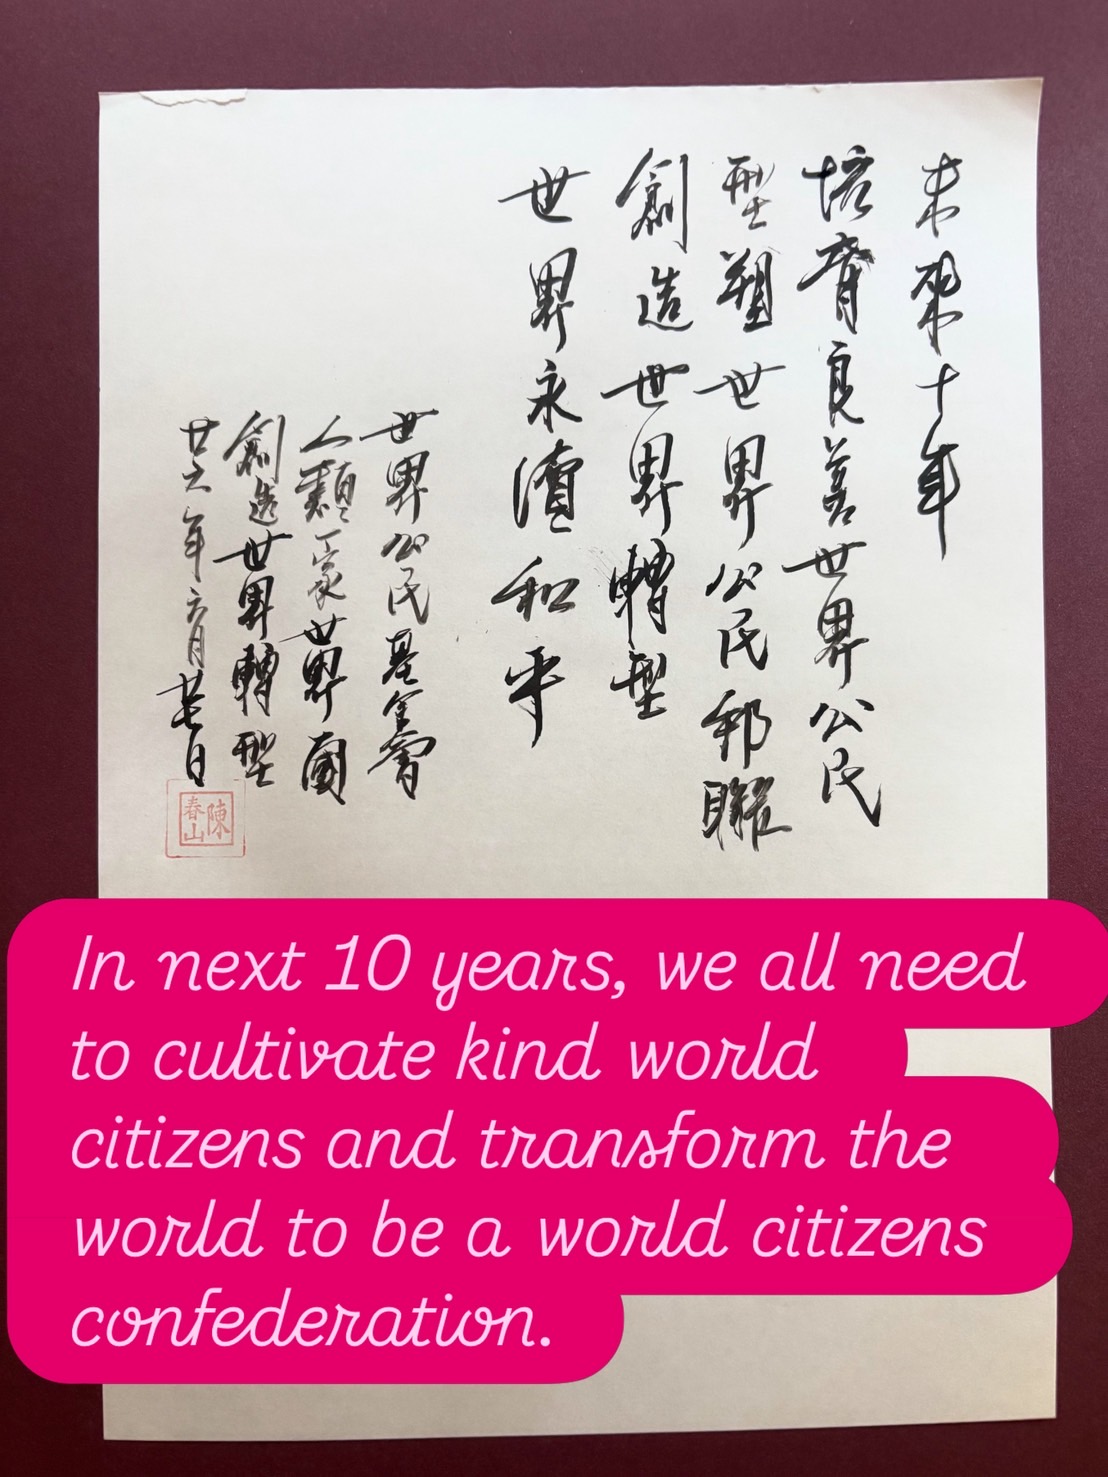 未來十年
培育良善世界公民
型塑世界公民邦聯
創造世界轉型
世界永續和平
世界公民基金會
人類一家世界國
創造世界轉型
廿六年六月廿七日
陳春山
In next 10 years, we all need
to cultivate kind world
citizens and transform the
world to be a world citizens
confederation.